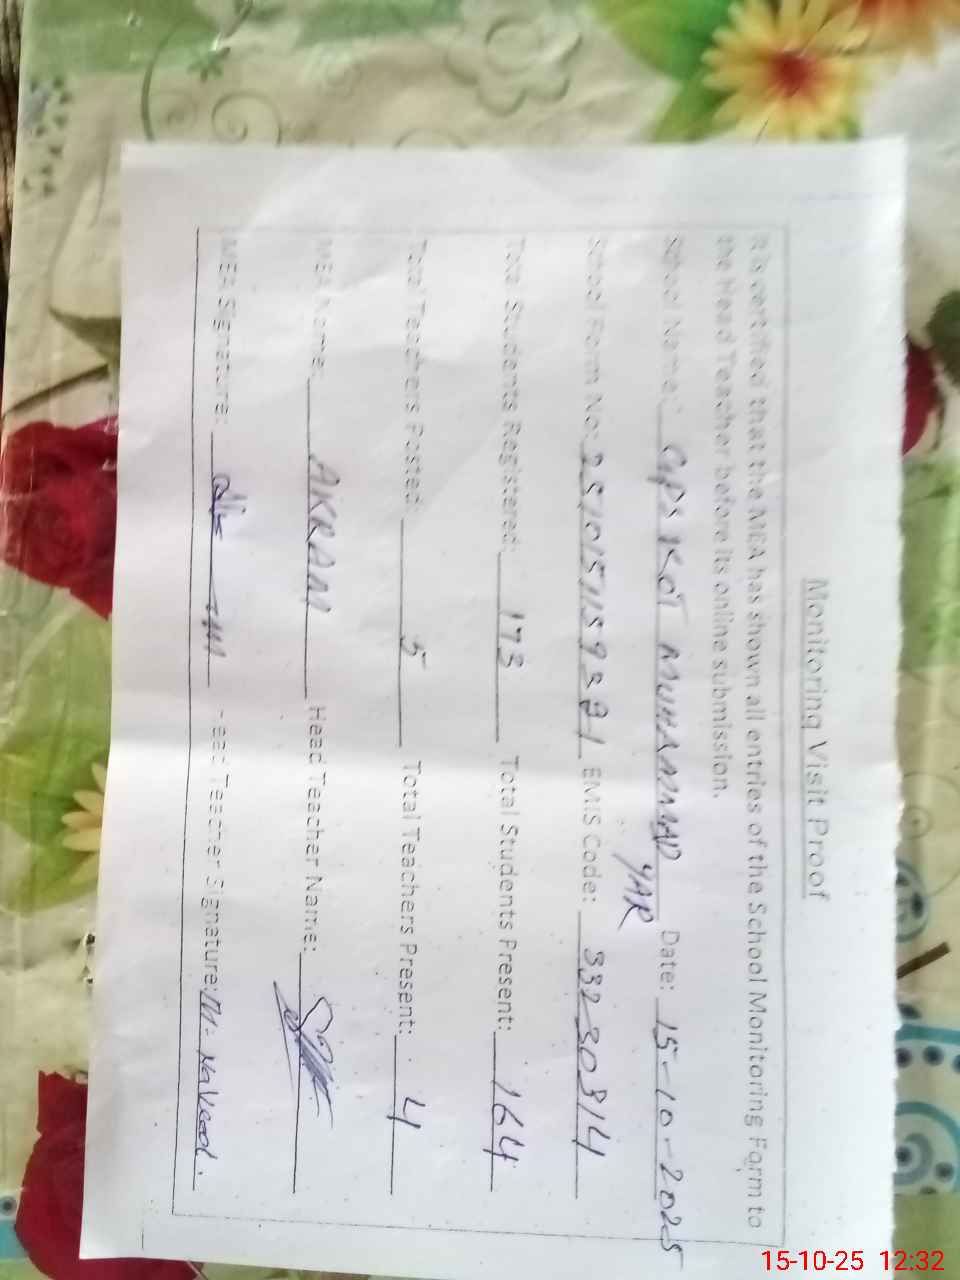 Monitoring Visit Proof
It is certified that the MEA has shown all entries of the School Monitoring Form to
the Head Teacher before its online submission.
School Name: GPS KOT MUHAMMAD YAR Date: 15-10-2025
School Form No: EMIS Code: 33230314
Total Students Registered: 173 Total Students Present: 164
Total Teachers Posted: 5 Total Teachers Present: 4
MEA Name: AKRAM Head Teacher Name:
MEA Signature: Head Teacher Signature: M. Naveed.
15-10-25 12:32